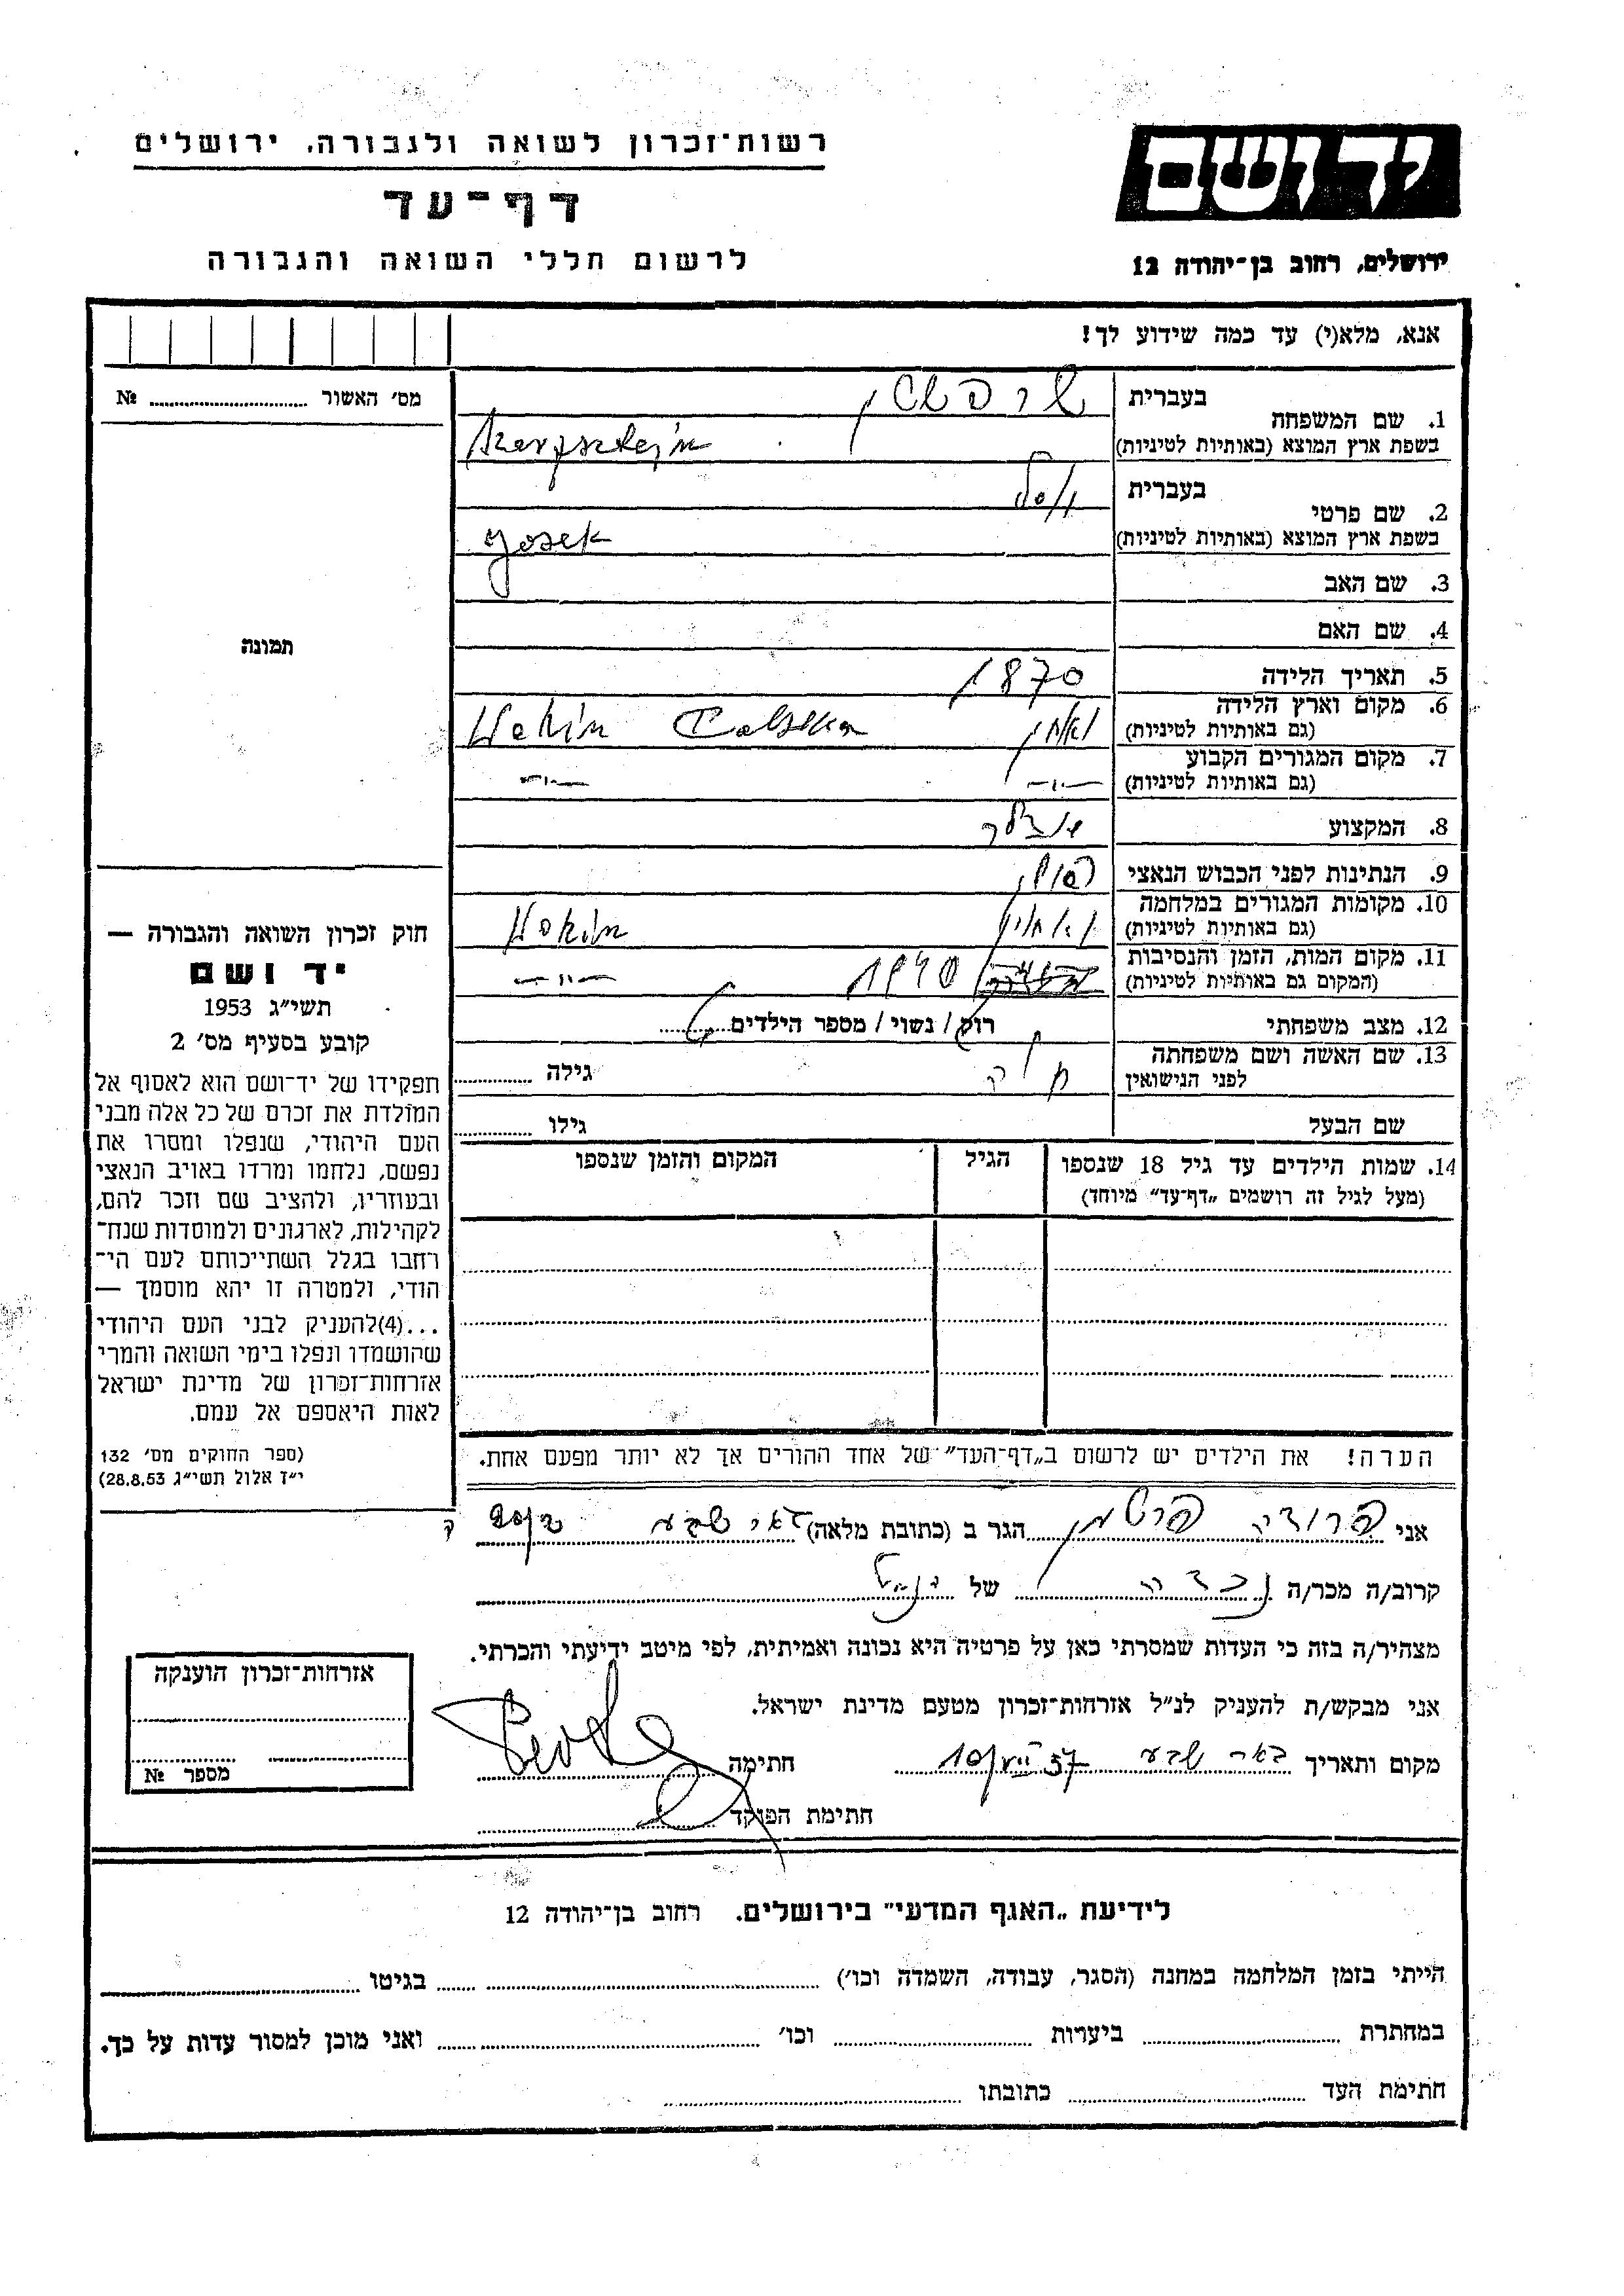 רשות־זכרון לשואה ולגבורה, ירושלים
יד ושם
דף־עד
לרשום חללי השואה והגבורה
ירושלים, רחוב בן־יהודה 12
אנא, מלא(י) עד כמה שידוע לך!
מס׳ האשור № ........
1. שם המשפחה
בעברית
בשפת ארץ המוצא (באותיות לטיניות)
2. שם פרטי
בעברית
בשפת ארץ המוצא (באותיות לטיניות) Josek
3. שם האב
4. שם האם
תמונה
5. תאריך הלידה 1870
6. מקום וארץ הלידה
(גם באותיות לטיניות)
7. מקום המגורים הקבוע
(גם באותיות לטיניות) —״— —״—
8. המקצוע
9. הנתינות לפני הכבוש הנאצי
10. מקומות המגורים במלחמה
(גם באותיות לטיניות)
11. מקום המות, הזמן והנסיבות
(המקום גם באותיות לטיניות) 1940 —״—
12. מצב משפחתי רווק / נשוי / מספר הילדים ........
13. שם האשה ושם משפחתה
לפני הנישואין גילה ........
שם הבעל גילו ........
14. שמות הילדים עד גיל 18 שנספו
(מעל לגיל זה רושמים „דף־עד״ מיוחד)
הגיל
המקום והזמן שנספו
חוק זכרון השואה והגבורה —
יד ושם
תשי״ג 1953
קובע בסעיף מס׳ 2
תפקידו של יד־ושם הוא לאסוף אל
המולדת את זכרם של כל אלה מבני
העם היהודי, שנפלו ומסרו את
נפשם, נלחמו ומרדו באויב הנאצי
ובעוזריו, ולהציב שם וזכר להם,
לקהילות, לארגונים ולמוסדות שנח־
רחבו בגלל השתייכותם לעם הי־
הודי, ולמטרה זו יהא מוסמך —
...(4)להעניק לבני העם היהודי
שהושמדו ונפלו בימי השואה והמרי
אזרחות־זכרון של מדינת ישראל
לאות היאספם אל עמם.
(ספר החוקים מס׳ 132
י״ז אלול תשי״ג 28.8.53)
הערה! את הילדים יש לרשום ב„דף־העד״ של אחד ההורים אך לא יותר מפעם אחת.
אני הגר ב (כתובת מלאה) באר שבע
קרוב/ה מכר/ה נכדה של
מצהיר/ה בזה כי העדות שמסרתי כאן על פרטיה היא נכונה ואמיתית, לפי מיטב ידיעתי והכרתי.
אני מבקש/ת להעניק לנ״ל אזרחות־זכרון מטעם מדינת ישראל.
מקום ותאריך באר שבע 10/VII 57 חתימה
חתימת הפוקד
אזרחות־זכרון הוענקה
מספר №
לידיעת „האגף המדעי״ בירושלים. רחוב בן־יהודה 12
הייתי בזמן המלחמה במחנה (הסגר, עבודה, השמדה וכו׳) ........ בגיטו ........
במחתרת ........ ביערות ........ וכו׳ ........ ואני מוכן למסור עדות על כך.
חתימת העד ........ כתובתו ........